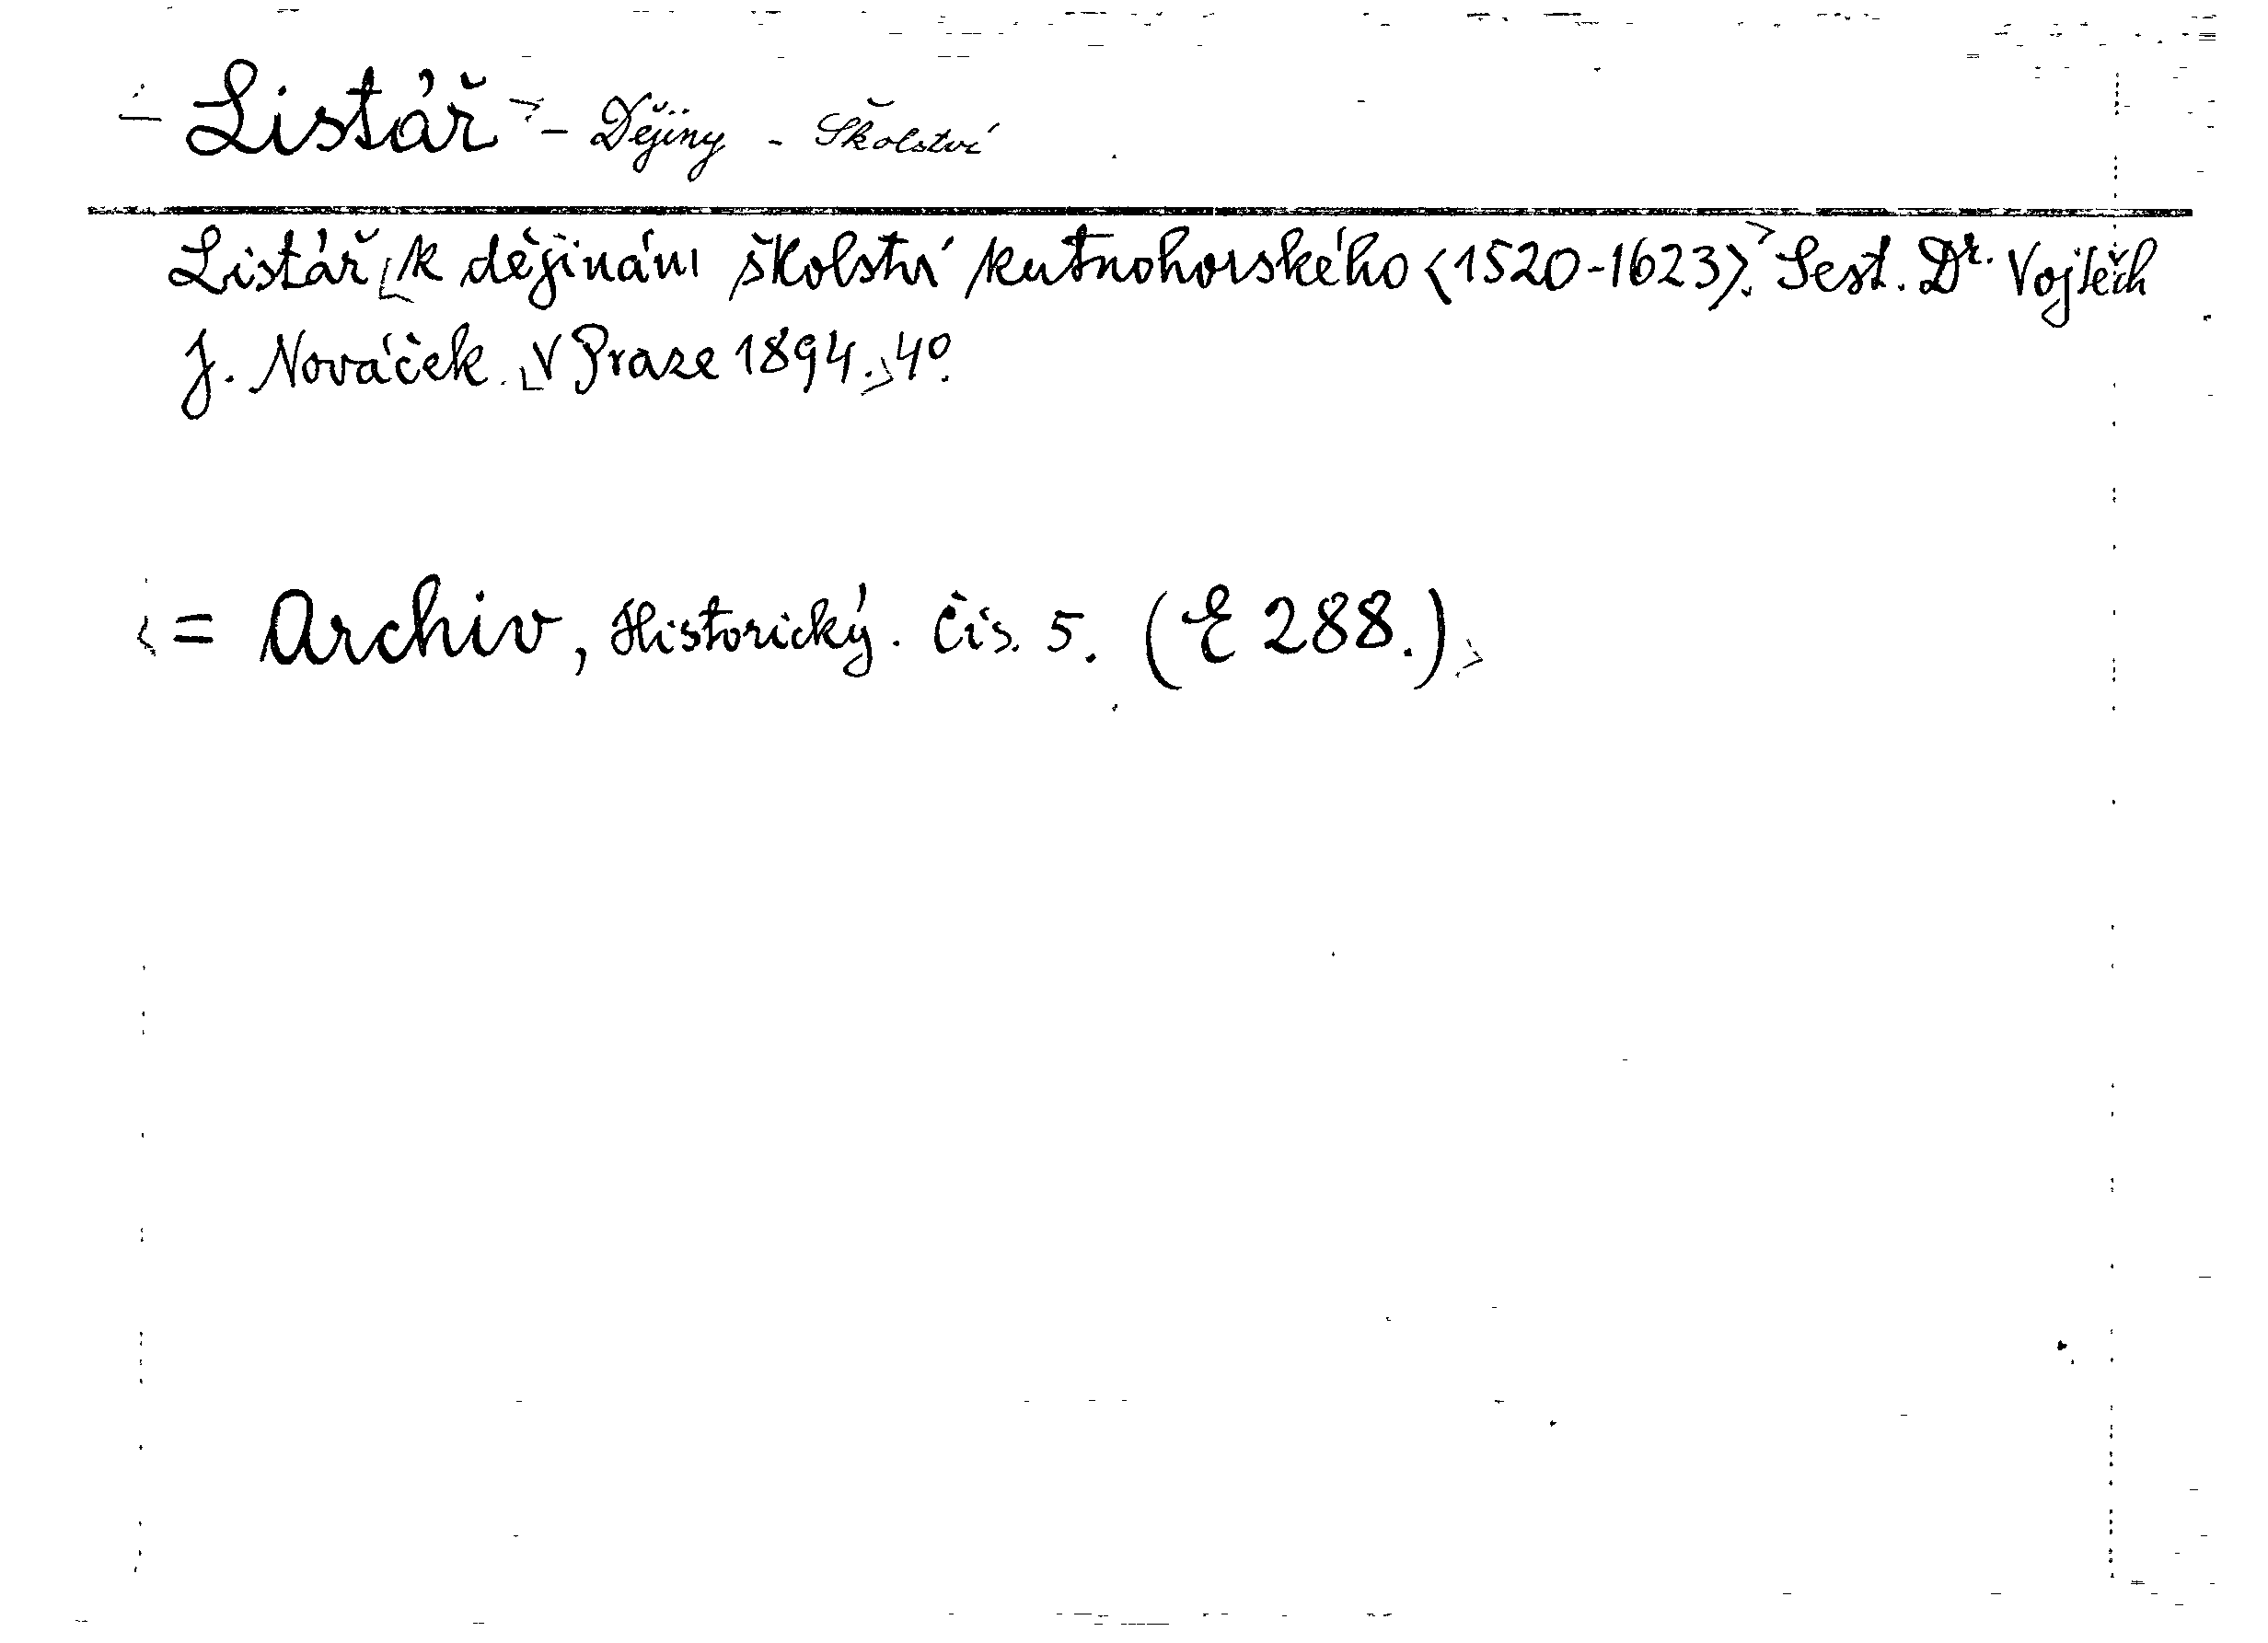 Listář - Dějiny - Školství
Listář k dějinám školství kutnohorského <1520-1623>. Sest. Dr. Vojtěch
J. Nováček. V Praze 1894. 4º.
= Archiv, Historický. Čís. 5. (E 288.)